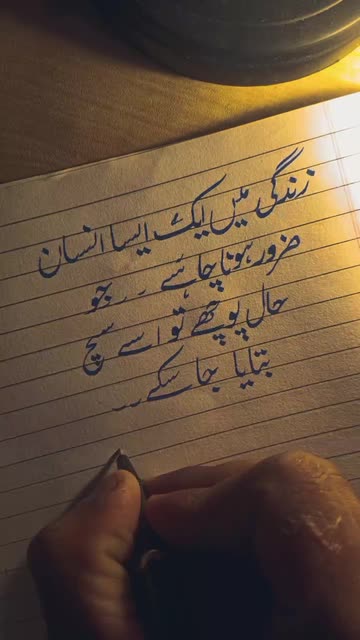 زندگی میں ایک ایسا انسان
ضرور ہونا چاہئے ۔۔ جو
حال پوچھے تو اسے سچ
بتایا جا سکے ۔۔